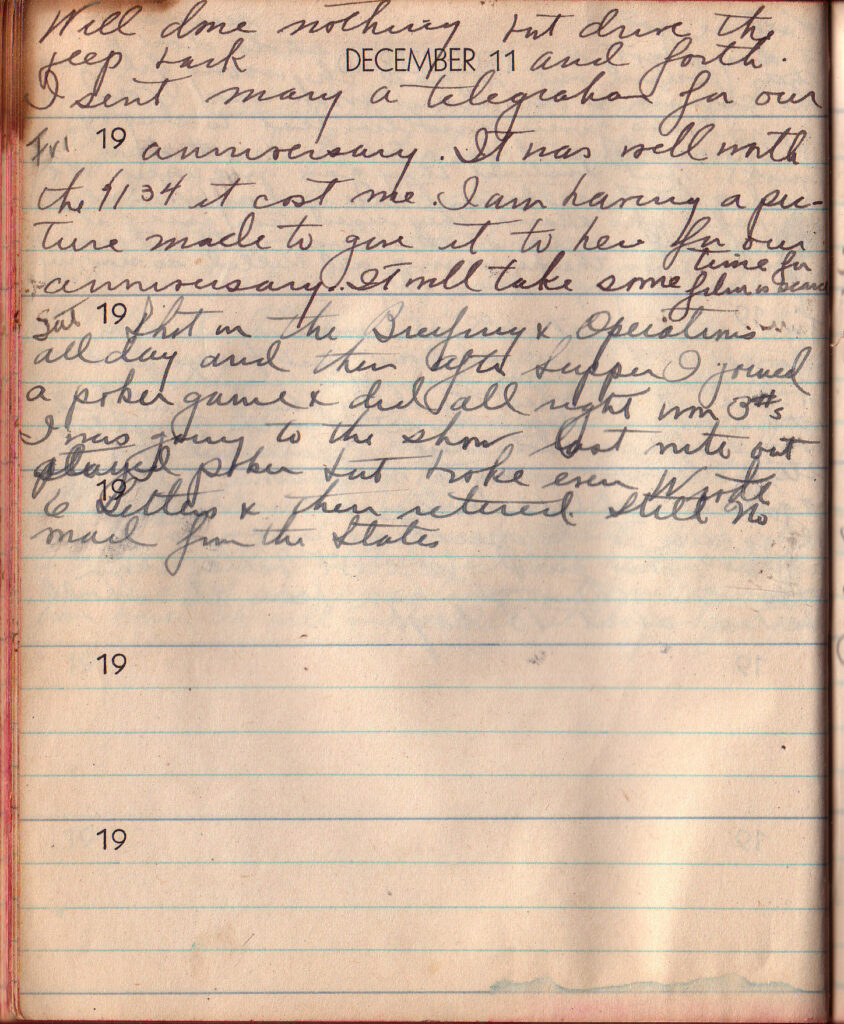 Well done nothing but drive the
jeep back DECEMBER 11 and forth.
I sent mary a telegraham for our
Fri 19 anniversary. It was well worth
the $1 34 it cost me. I am having a pic-
ture made to give it to her for our
anniversary. It will take some time for
film is
Sat 19 Shot in the Breifing & Operations
all day and then after supper I joined
a poker game & did all right won 3
I was going to the show last nite but
played poker but broke even Wrote
19
6 Letters & then retired Still No
mail from the States
19
19